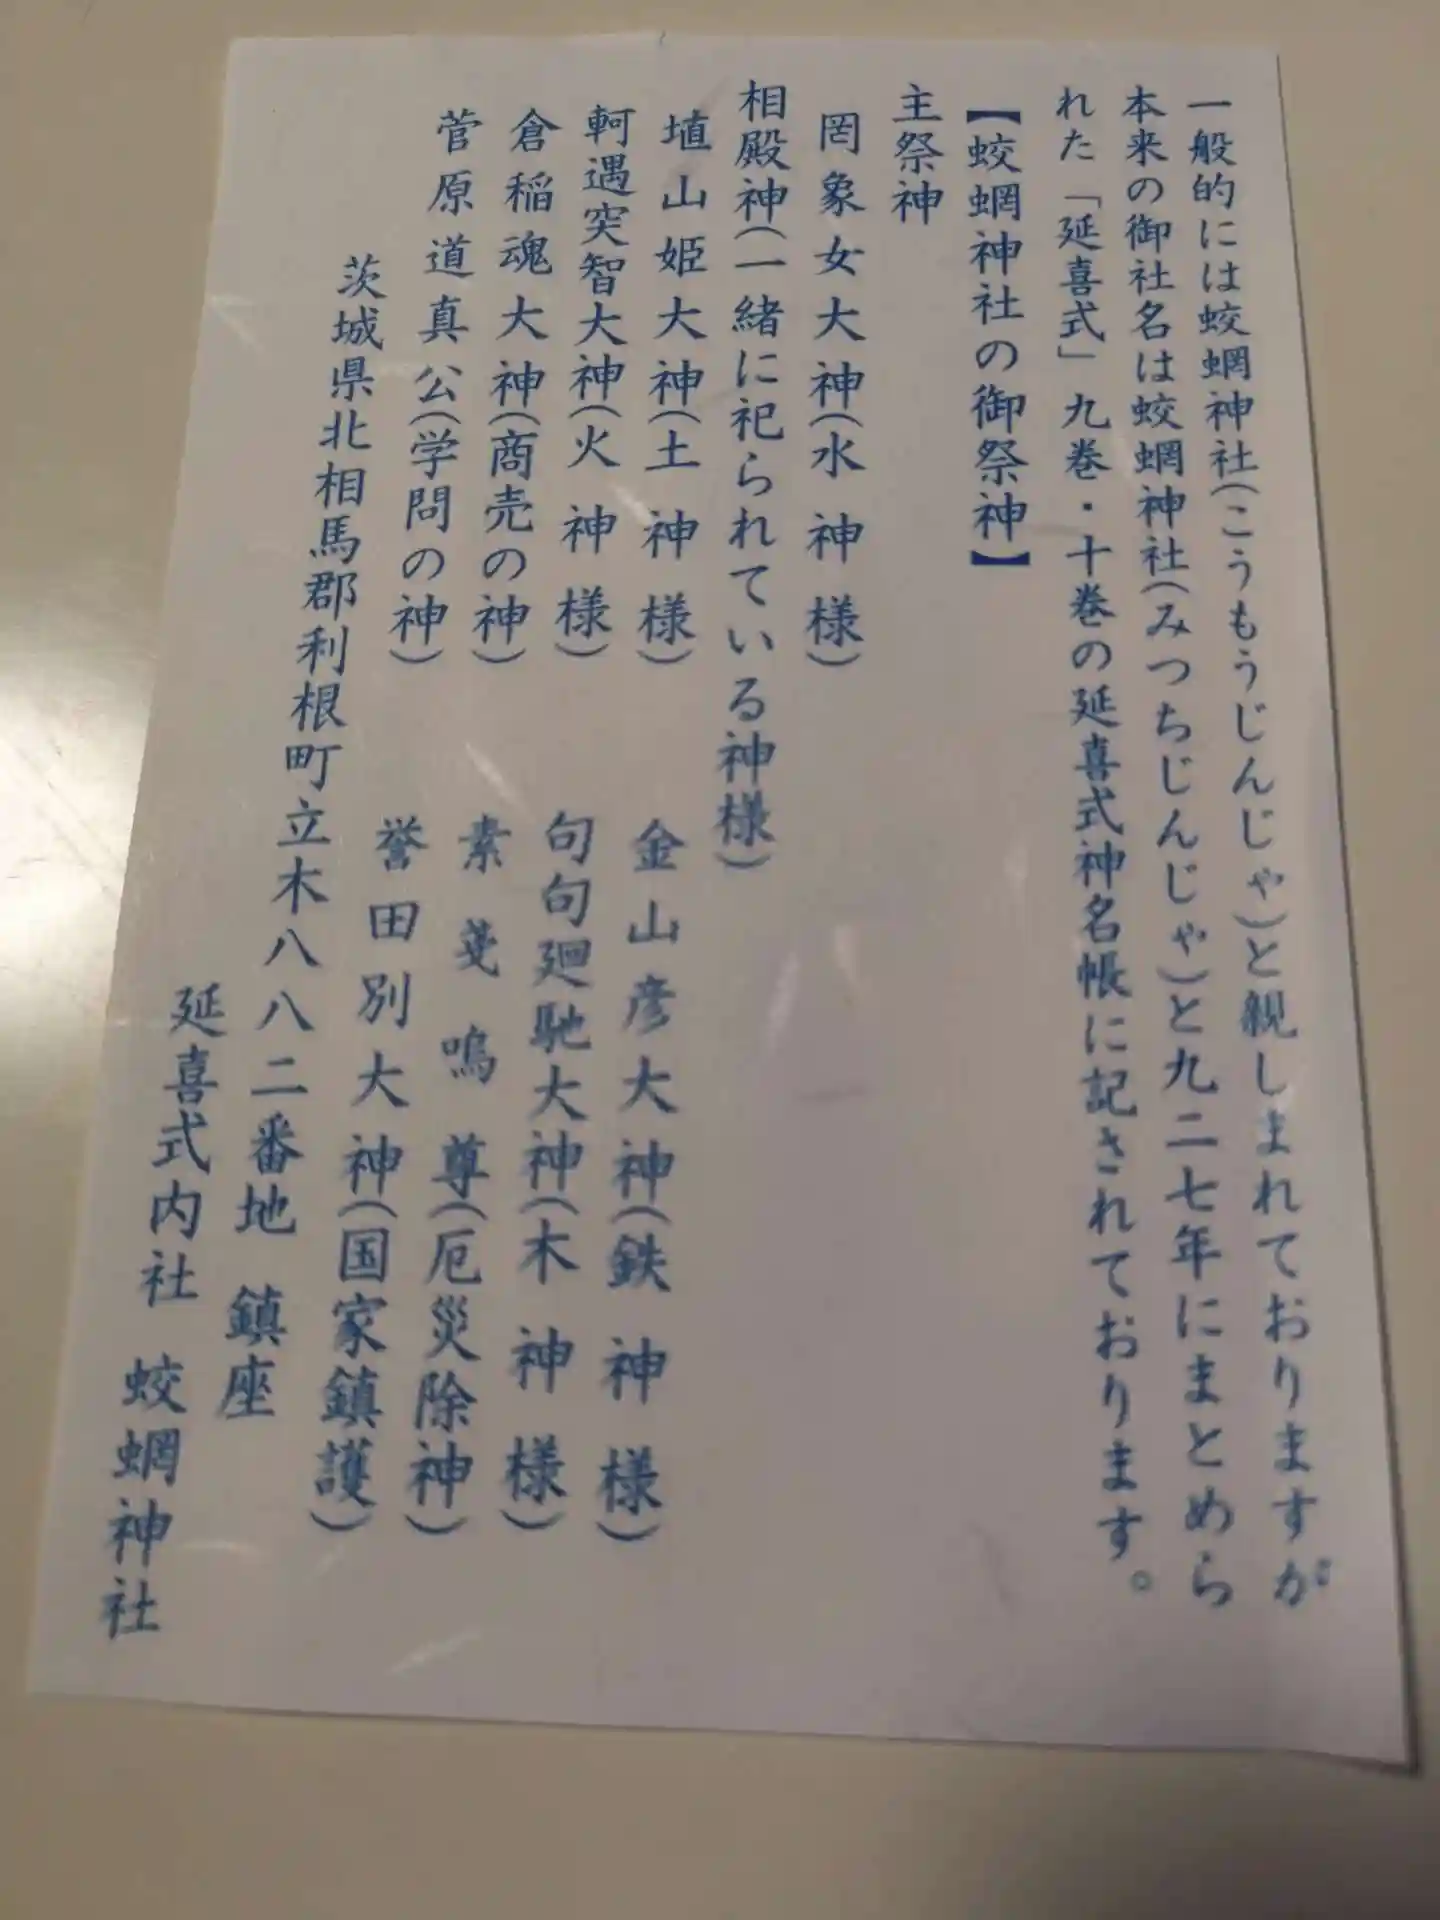 一般的には蛟蝄神社(こうもうじんじゃ)と親しまれておりますが
本来の御社名は蛟蝄神社(みつちじんじゃ)と九二七年にまとめら
れた「延喜式」九巻・十巻の延喜式神名帳に記されております。
【蛟蝄神社の御祭神】
主祭神
罔象女大神(水神様)
相殿神(一緒に祀られている神様)
埴山姫大神(土神様)
金山彦大神(鉄神様)
軻遇突智大神(火神様)
句句廻馳大神(木神様)
倉稲魂大神(商売の神)
素戔嗚尊(厄災除神)
菅原道真公(学問の神)
誉田別大神(国家鎮護)
茨城県北相馬郡利根町立木八八二番地 鎮座
延喜式内社 蛟蝄神社